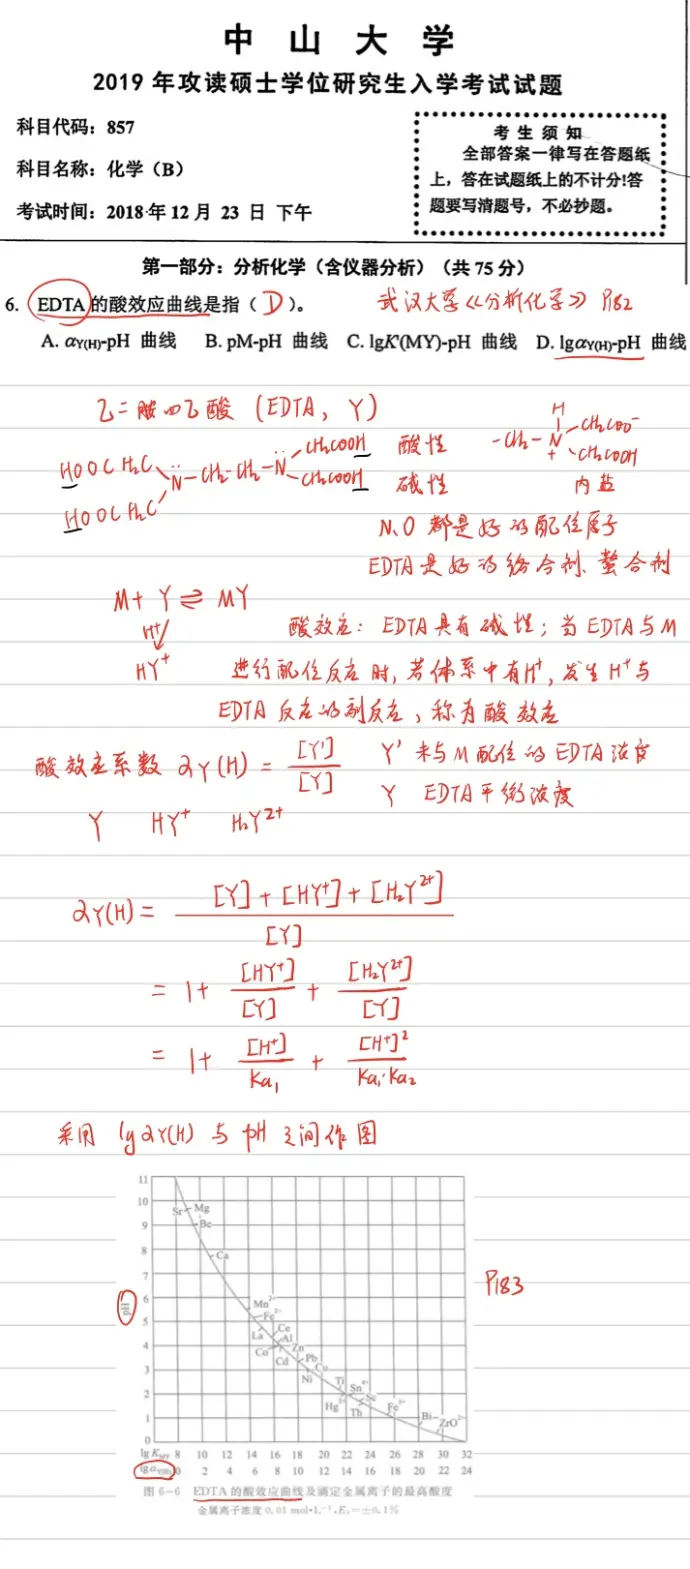 中 山 大 学
2019 年攻读硕士学位研究生入学考试试题
科目代码：857
科目名称：化学（B）
考试时间：2018 年 12 月 23 日 下午
考 生 须 知
全部答案一律写在答题纸
上，答在试题纸上的不计分!答
题要写清题号，不必抄题。
第一部分：分析化学（含仪器分析）（共 75 分）
6. EDTA 的酸效应曲线是指（ D ）。 武汉大学《分析化学》 P182
A. αY(H)-pH 曲线 B. pM-pH 曲线 C. lgK'(MY)-pH 曲线 D. lgαY(H)-pH 曲线
乙二胺四乙酸 (EDTA, Y)
HOOCH₂C CH₂COOH 酸性
N̈-CH₂-CH₂-N̈
HOOCH₂C CH₂COOH 碱性
H
-CH₂-N CH₂COO⁻
+ CH₂COOH
内盐
N、O 都是好的配位原子
EDTA是好的络合剂、螯合剂
M + Y ⇌ MY
H⁺
HY⁺
酸效应：EDTA具有碱性；当EDTA与M
进行配位反应时，若体系中有H⁺，发生H⁺与
EDTA反应的副反应，称为酸效应
酸效应系数 αY(H) = [Y']/[Y] Y' 未与M配位的EDTA浓度
Y EDTA平衡浓度
Y HY⁺ H₂Y²⁺
αY(H) = [Y]+[HY⁺]+[H₂Y²⁺]/[Y]
= 1+ [HY⁺]/[Y] + [H₂Y²⁺]/[Y]
= 1+ [H⁺]/Ka₁ + [H⁺]²/Ka₁·Ka₂
采用 lgαY(H) 与 pH 之间作图
11
10
9
8
7
6
5
4
3
2
1
0
pH
Sr Mg
Be
Ca
Mn²⁻
Fe²⁻
La Ce
Al
Co Zn
Cd Pb
Cu
Ni
Ti Sn⁴⁺
Sc
Hg²⁺ Th
Fe³⁺
Bi
ZrO²⁺
P183
lg K_MY 8 10 12 14 16 18 20 22 24 26 28 30 32
lg α_Y(H) 0 2 4 6 8 10 12 14 16 18 20 22 24
图 6-6 EDTA 的酸效应曲线及滴定金属离子的最高酸度
金属离子浓度 0.01 mol·L⁻¹,Eₜ=±0.1%